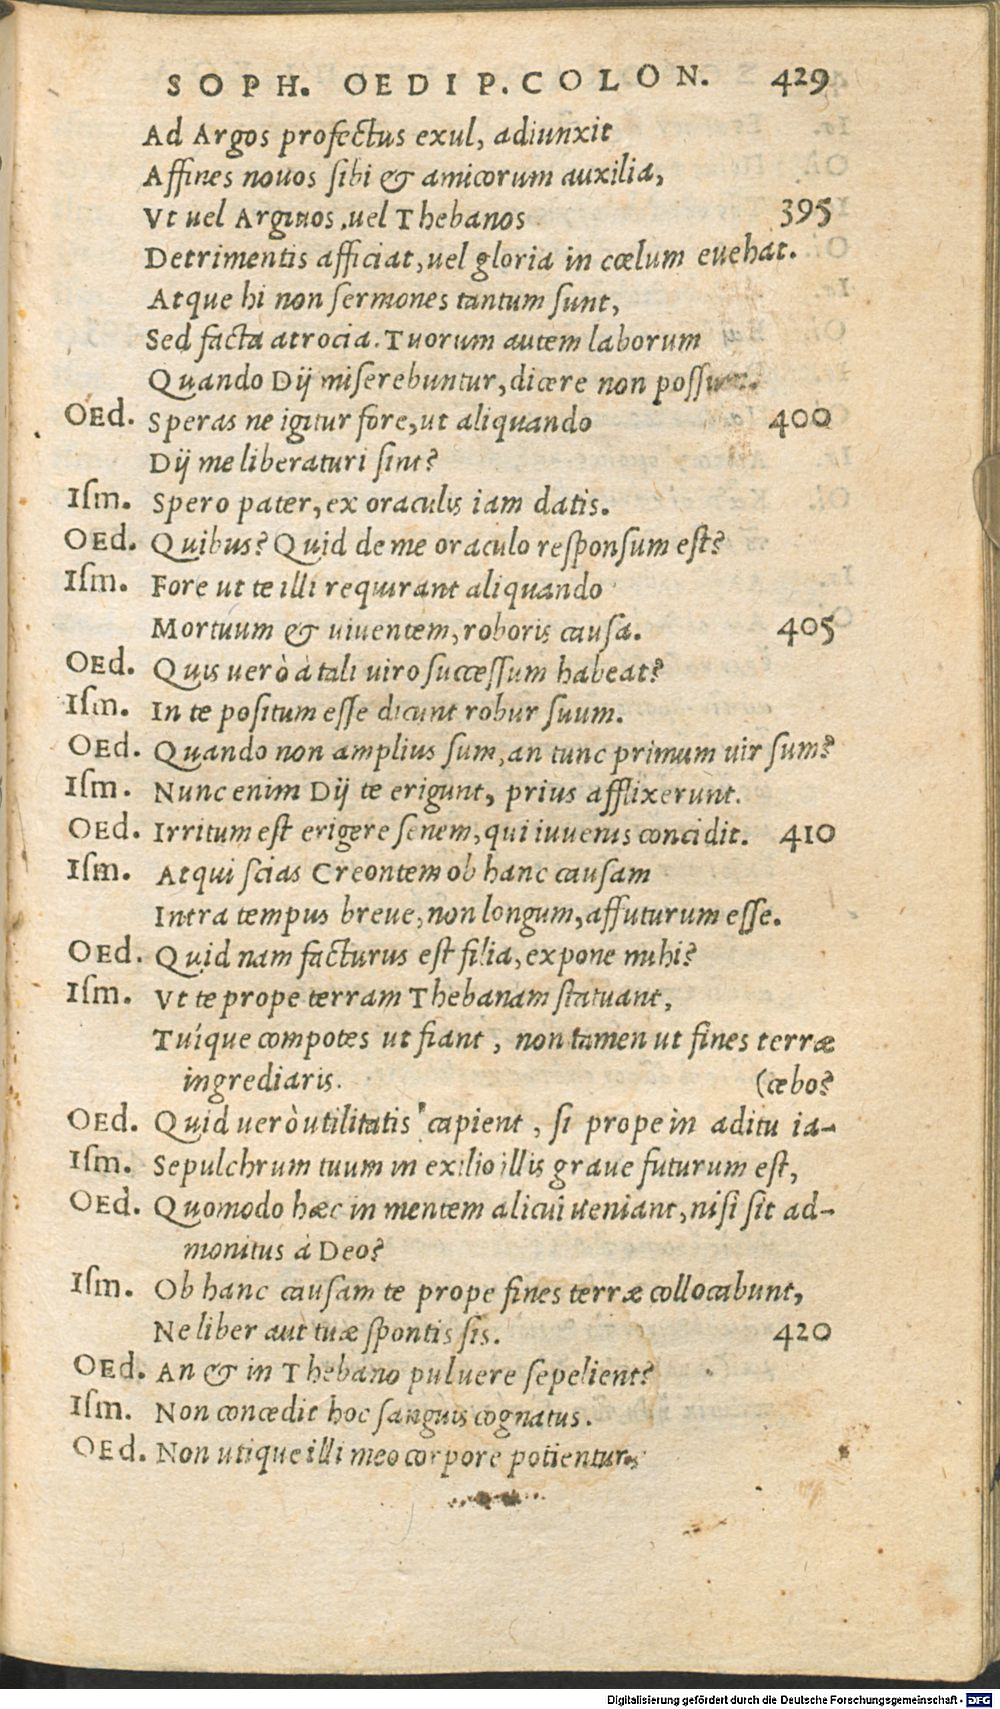 SOPH. OEDIP. COLON. 429
Ad Argos profectus exul, adiunxit
Affines nouos sibi & amicorum auxilia,
Vt uel Arginos, uel Thebanos 395
Detrimentis afficiat, uel gloria in cœlum euehat.
Atque hi non sermones tantum sunt,
Sed facta atrocia. Tuorum autem laborum
Quando Dij miserebuntur, dicere non possum.
OEd. Speras ne igitur fore, ut aliquando 400
Dij me liberaturi sint?
Ism. Spero pater, ex oraculis iam datis.
OEd. Quibus? Quid de me oraculo responsum est?
Ism. Fore ut te illi requirant aliquando
Mortuum & uiuentem, roboris causa. 405
OEd. Quis uerò à tali uiro successum habeat?
Ism. In te positum esse dicunt robur suum.
OEd. Quando non amplius sum, an tunc primum uir sum?
Ism. Nunc enim Dij te erigunt, prius afflixerunt.
OEd. Irritum est erigere senem, qui iuuenis concidit. 410
Ism. Atqui scias Creontem ob hanc causam
Intra tempus breue, non longum, affuturum esse.
OEd. Quid nam facturus est filia, expone mihi?
Ism. Vt te prope terram Thebanam statuant,
Tuíque compotes ut fiant, non tamen ut fines terræ
ingrediaris. (cebo?
OEd. Quid uerò utilitatis capient, si prope in aditu ia-
Ism. Sepulchrum tuum in exilio illis graue futurum est,
OEd. Quomodo hæc in mentem alicui ueniant, nisi sit ad-
monitus à Deo?
Ism. Ob hanc causam te prope fines terræ collocabunt,
Ne liber aut tuæ spontis sis. 420
OEd. An & in Thebano puluere sepelient?
Ism. Non concedit hoc sanguis cognatus.
OEd. Non utique illi meo corpore potientur.
Digitalisierung gefördert durch die Deutsche Forschungsgemeinschaft - DFG